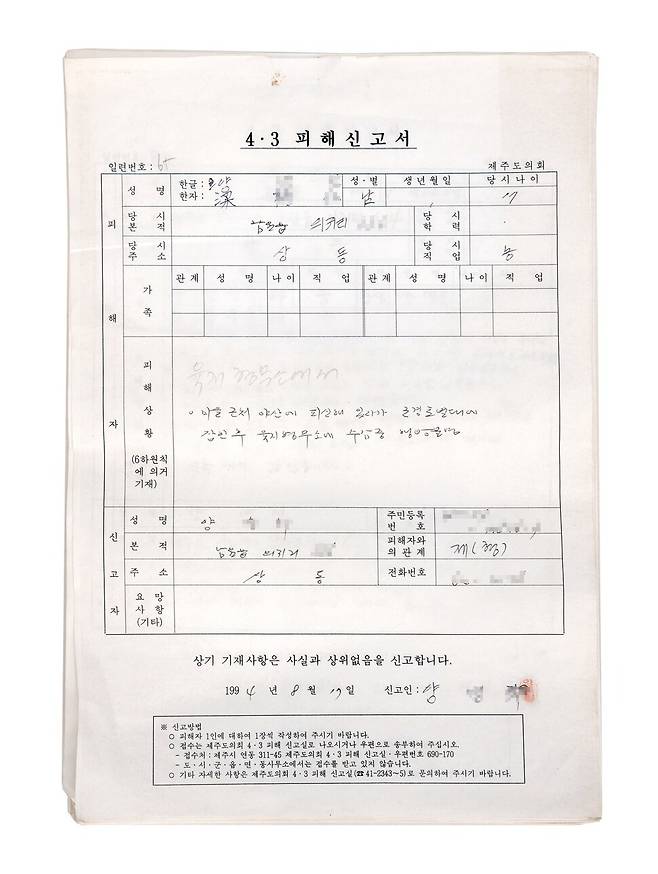 4·3 피해신고서
일련번호: 65
제주도의회
피해자
성 명
한글: 양
한자: 梁
성·별
남
생년월일
당시나이
당시본적
남원읍 의귀리
당시학력
당시주소
상 동
당시직업
농
가족
관계 성 명 나이 직 업 관계 성 명 나이 직 업
피해상황
(6하원칙에 의거 기재)
육지 형무소에서
마을 근처 야산에 피신해 있다가 군경토벌대에
잡힌 후 육지형무소에 수감중 행방불명
신고자
성 명
양
주민등록번호
본 적
남원읍 의귀리
피해자와의 관계
제(형)
주 소
상 동
전화번호
요망사항(기타)
상기 기재사항은 사실과 상위없음을 신고합니다.
1994 년 8 월 19 일 신고인: 양
※ 신고방법
○ 피해자 1인에 대하여 1장씩 작성하여 주시기 바랍니다.
○ 접수는 제주도의회 4·3 피해 신고실로 나오시거나 우편으로 송부하여 주십시오.
- 접수처: 제주시 연동 311-45 제주도의회 4·3 피해 신고실·우편번호 690-170
- 도·시·군·읍·면·동사무소에서는 접수를 받고 있지 않습니다.
○ 기타 자세한 사항은 제주도의회 4·3 피해 신고실(☎41-2343~5)로 문의하여 주시기 바랍니다.